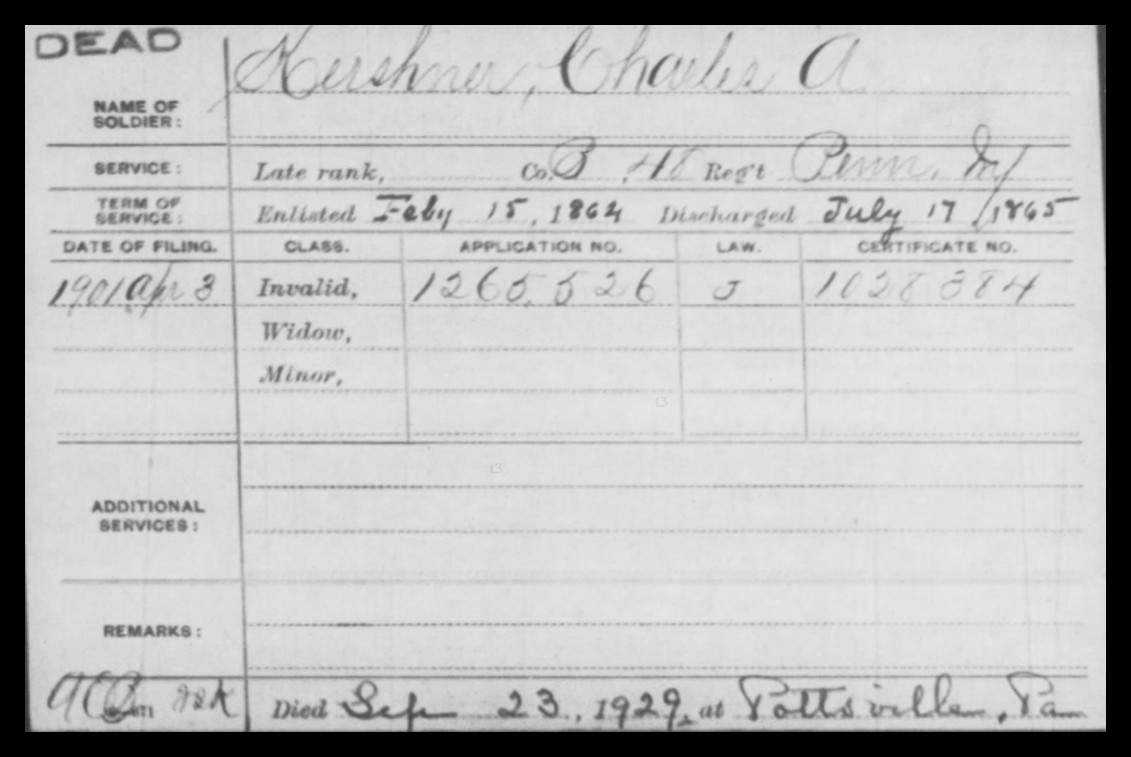 DEAD
Kershner, Charles A.
NAME OF
SOLDIER:
SERVICE: Late rank, Co. B, 48 Reg't Penn. Inf
TERM OF
SERVICE: Enlisted Feby 15, 1864 Discharged July 17 / 1865
DATE OF FILING. CLASS. APPLICATION NO. LAW. CERTIFICATE NO.
1901 Apr 3 Invalid, 1265,526 J 1028384
Widow,
Minor,
ADDITIONAL
SERVICES:
REMARKS:
Died Sep 23, 1929, at Pottsville, Pa